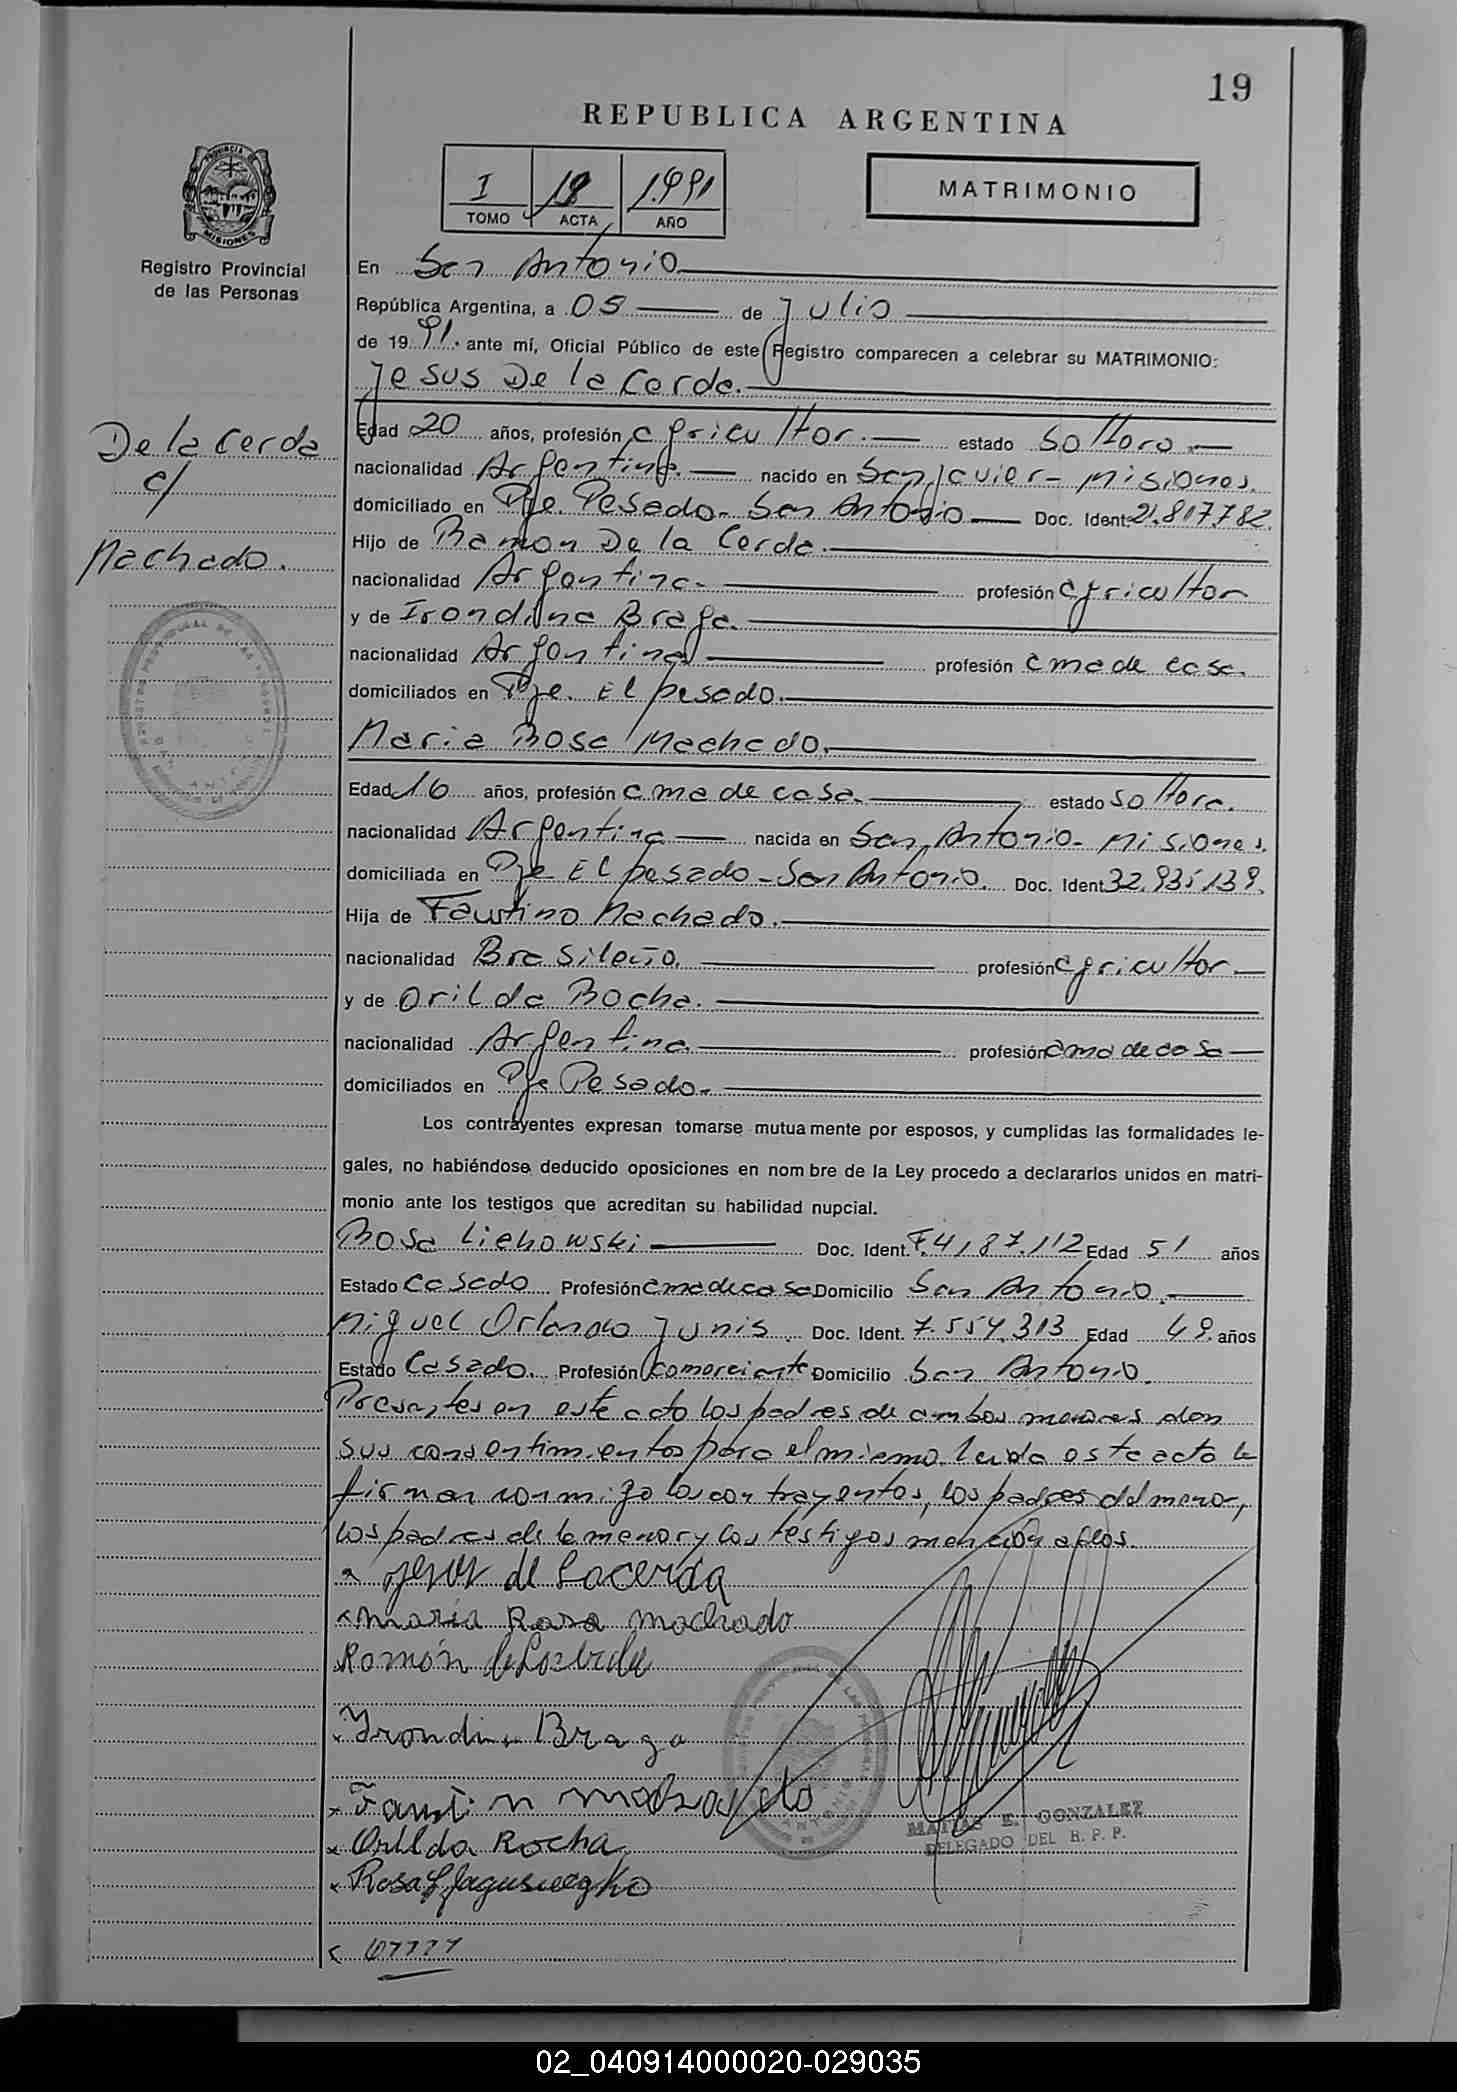 19
REPUBLICA ARGENTINA
I 18 1.991
TOMO ACTA AÑO
MATRIMONIO
PROVINCIA DE MISIONES
Registro Provincial
de las Personas
De la Cerda
c/
Machado.
En San Antonio
República Argentina, a 05 de Julio
de 1991. ante mí, Oficial Público de este Registro comparecen a celebrar su MATRIMONIO:
Jesus De la Cerda.
Edad 20 años, profesión agricultor. estado soltero.
nacionalidad Argentina. nacido en San Javier - Misiones.
domiciliado en Pje. Pesado - San Antonio Doc. Ident. 21.817.782.
Hijo de Ramon De la Cerda.
nacionalidad Argentina. profesión agricultor
y de Irondina Braga.
nacionalidad Argentina profesión ama de casa.
domiciliados en Pje. El pesado.
Maria Rosa Machado.
Edad 16 años, profesión ama de casa. estado soltera.
nacionalidad Argentina nacida en San Antonio - Misiones.
domiciliada en Pje El pesado - San Antonio. Doc. Ident 32.935.139.
Hija de Faustino Machado.
nacionalidad Brasileño. profesión agricultor
y de Orilda Rocha.
nacionalidad Argentina profesión ama de casa
domiciliados en Pje Pesado.
Los contrayentes expresan tomarse mutuamente por esposos, y cumplidas las formalidades le-
gales, no habiéndose deducido oposiciones en nombre de la Ley procedo a declararlos unidos en matri-
monio ante los testigos que acreditan su habilidad nupcial.
Rosa Liehowski Doc. Ident. F.4,87.112 Edad 51 años
Estado Casado Profesión ama de casa Domicilio San Antonio.
Miguel Orlando Junis. Doc. Ident. 7.554.313 Edad 49. años
Estado Casado. Profesión Comerciante Domicilio San Antonio.
Presentes en este acto los padres de ambos menores dan
sus consentimientos para el mismo. leida este acta la
firman conmigo los contrayentes, los padres del menor,
los padres de la menor y los testigos mencionados.
Jesus de Lacerda
Maria Rosa Machado
Ramón
Irondina Braga
Faustin Machado
Orilda Rocha
Rosa
MATIAS E. GONZALEZ
DELEGADO DEL R. P. P.
02_040914000020-029035